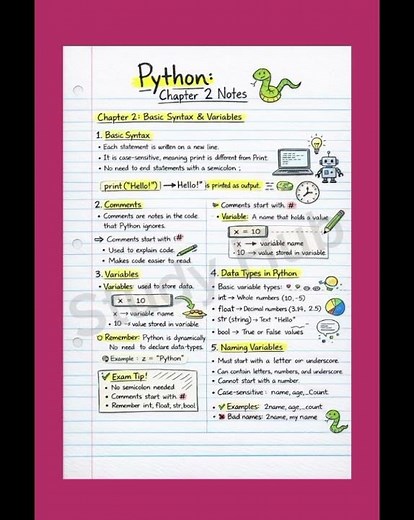 Python:
Chapter 2 Notes
Chapter 2: Basic Syntax & Variables
1. Basic Syntax
• Each statement is written on a new line.
• It is case-sensitive, meaning print is different from Print.
• No need to end statements with a semicolon ;
print("Hello!") → Hello!" is printed as output.
2. Comments
• Comments are notes in the code
that Python ignores.
⇒ Comments start with (#
• Used to explain code.
• Makes code easier to read.
Comments start with #
• Variable: A name that holds a value
x = 10
• x → variable name
• 10 → value stored in variable
3. Variables
• Variables: used to store data.
x = 10
x → variable name
• 10 → value stored in variable
Remember: Python is dynamically.
No need to declare data-types.
Example: z = "Python"
✓ Exam Tip!
• No semicolon needed
• Comments start with #
• Remember int, float, str, bool
4. Data Types in Python
• Basic variable types:
• int → Whole numbers (10, -5)
• float → Decimal numbers (3.14, 2.5)
• str (string) → Text "Hello"
• bool → True or False values
5. Naming Variables
• Must start with a letter or underscore.
• Can contain letters, numbers, and underscore.
• Cannot start with a number.
• Case-sensitive: name, age,_count
✓ Examples: 2name, age,_count
✗ Bad names: 2name, my name
Study Hub